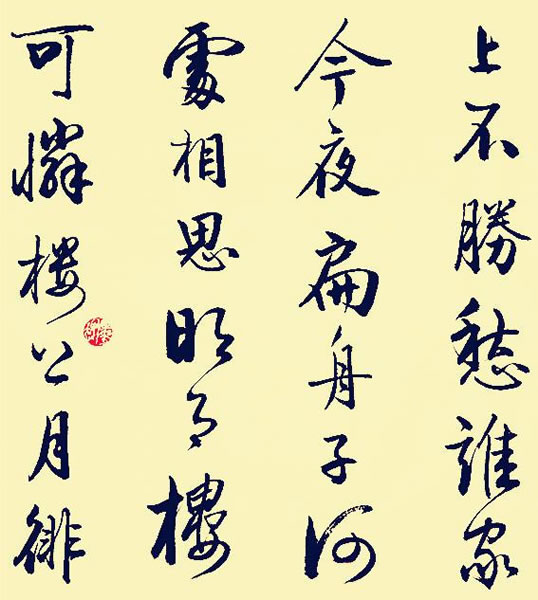 上不勝愁誰家
今夜扁舟子何
處相思明月樓
可憐樓上月徘